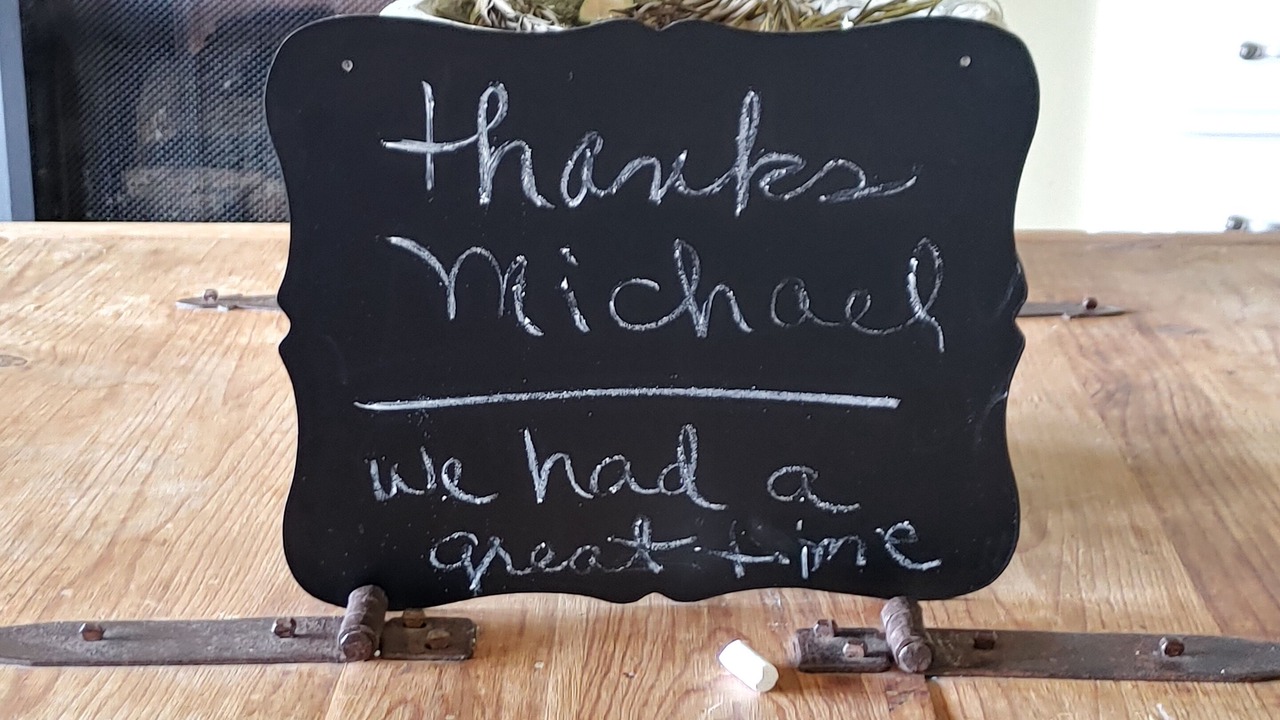 thanks
Michael
we had a
great time